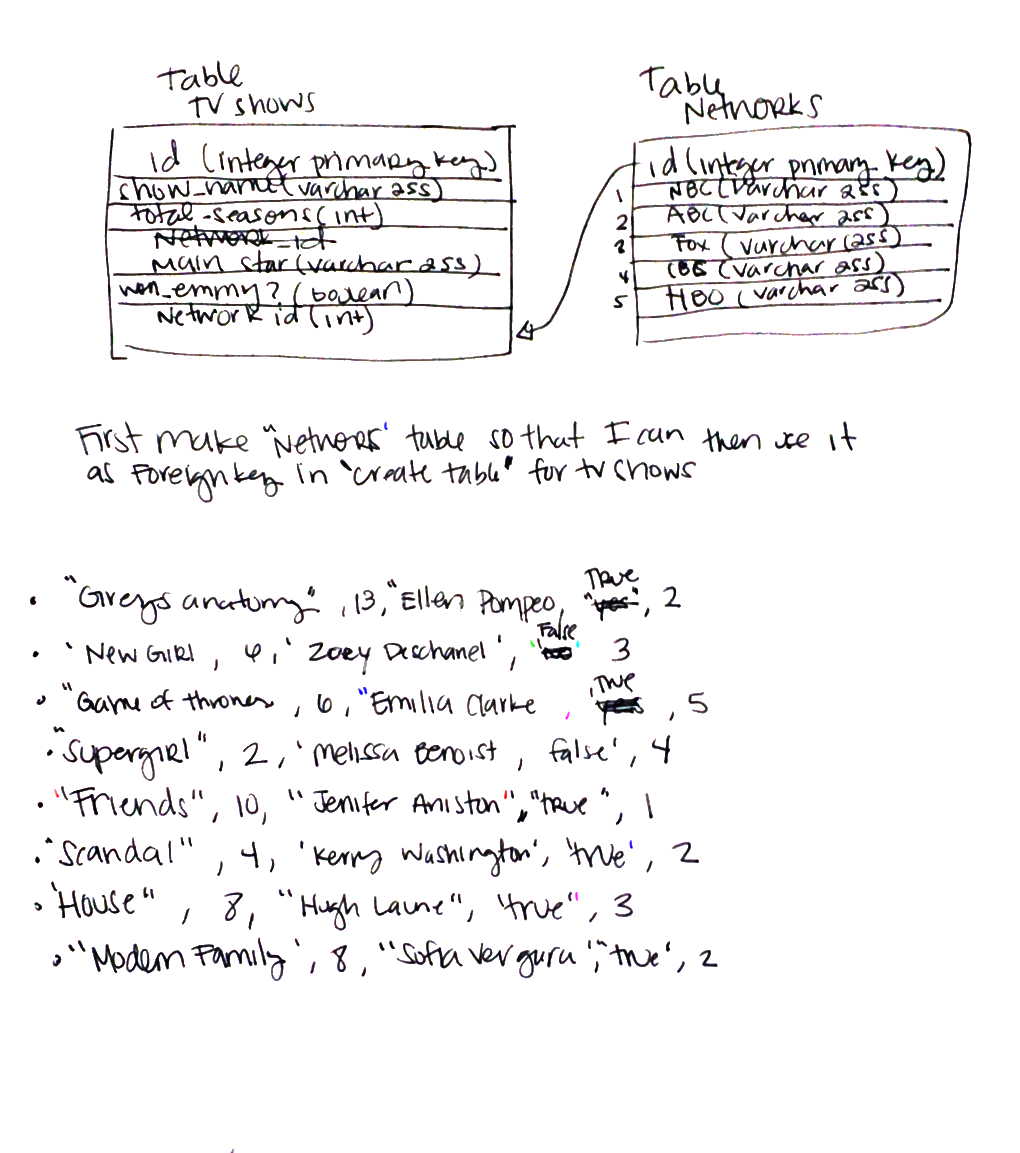 Table
TV shows
id (integer primary key)
show_name (varchar 255)
total_seasons (int)
Network_id
Main star (varchar 255)
won_emmy? (boolean)
Network id (int)
Table
Networks
id (integer primary key)
1 NBC (varchar 255)
2 ABC (varchar 255)
3 Fox (varchar (255)
4 CBS (varchar 255)
5 HBO (varchar 255)
First make "Networs' table so that I can then use it
as Foreign key in "create table" for tv shows
• "Greys anatomy", 13, "Ellen Pompeo, "yes" TRUE, 2
• 'New Girl, 6, 'Zoey Deschanel', False 3
• "Game of thrones, 6, "Emilia Clarke, yes True, 5
• "Supergirl", 2, 'Melissa Benoist, false', 4
• "Friends", 10, "Jenifer Aniston", "true", 1
• "Scandal", 4, 'Kerry Washington', 'true', 2
• 'House", 8, "Hugh Laurie", 'true", 3
• "Modern Family', 8, "Sofia Vergura', "true', 2